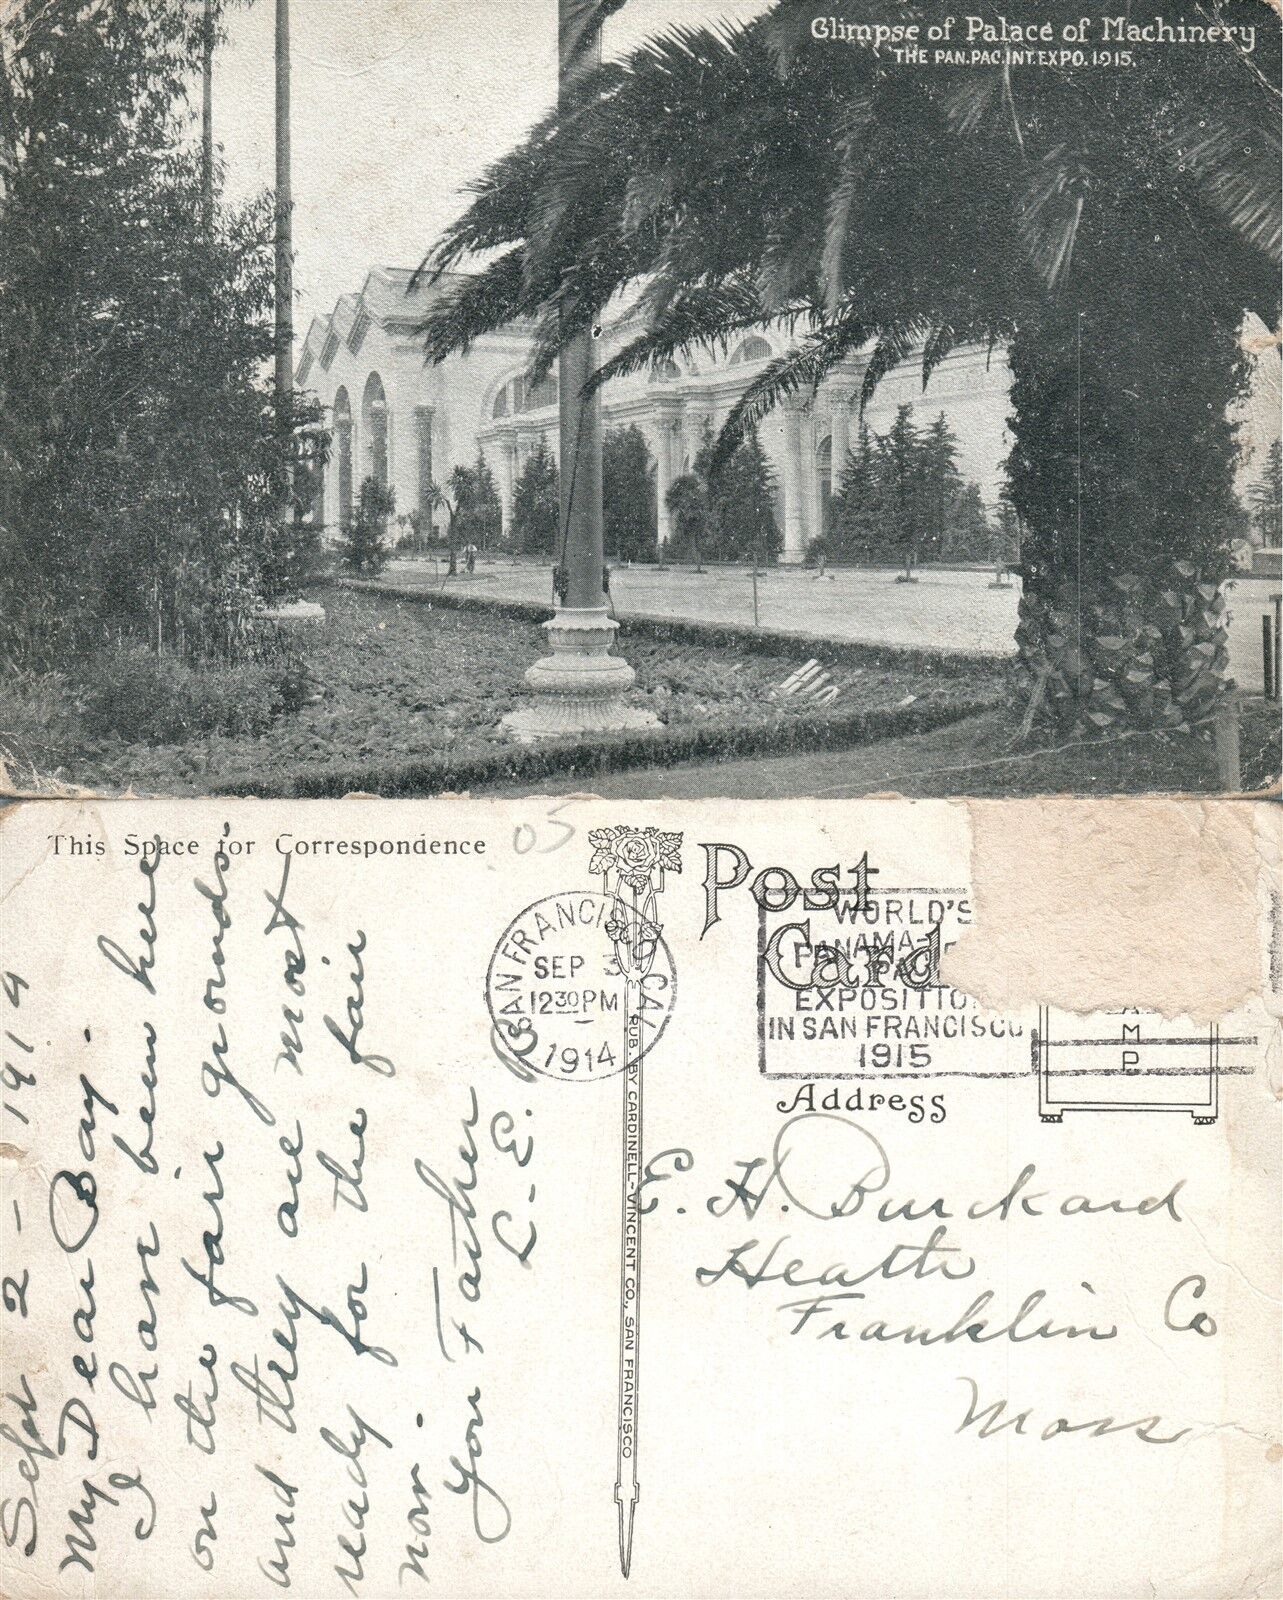 Glimpse of Palace of Machinery
THE PAN.PAC.INT.EXPO.1915.
This Space for Correspondence
05
Post
Card
SAN FRANCISCO CAL
SEP 3
12 30 PM
1914
WORLD'S
PANAMA-
PAC
EXPOSITIO
IN SAN FRANCISCO
1915
AMP
Address
PUB. BY CARDINELL-VINCENT CO., SAN FRANCISCO
Sept 2 - 1914
My Dear Boy.
I have been here
on the fair grounds
and they are most
ready for the fair
now.
Your Father
L-E. B
E. H. Burckard
Heath
Franklin Co
Mass